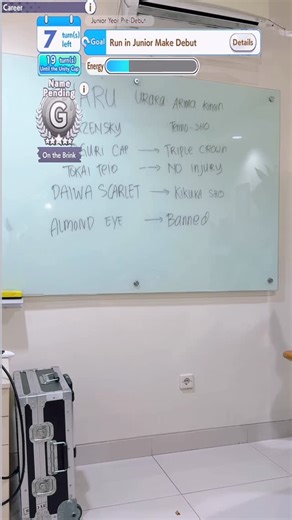 Career
Junior Year Pre-Debut
7 turn(s) left
Goal Run in Junior Make Debut Details
19 turn(s) Until the Unity Cup
Energy
Name Pending
G
On the Brink
ARU URARA ARIMA KINEN
ZENSKY TENNO SHO
GURI CAP → TRIPLE CROWN
TOKAI TEIO → NO INJURY
DAIWA SCARLET → KIKUKA SHO
ALMOND EYE → Banned